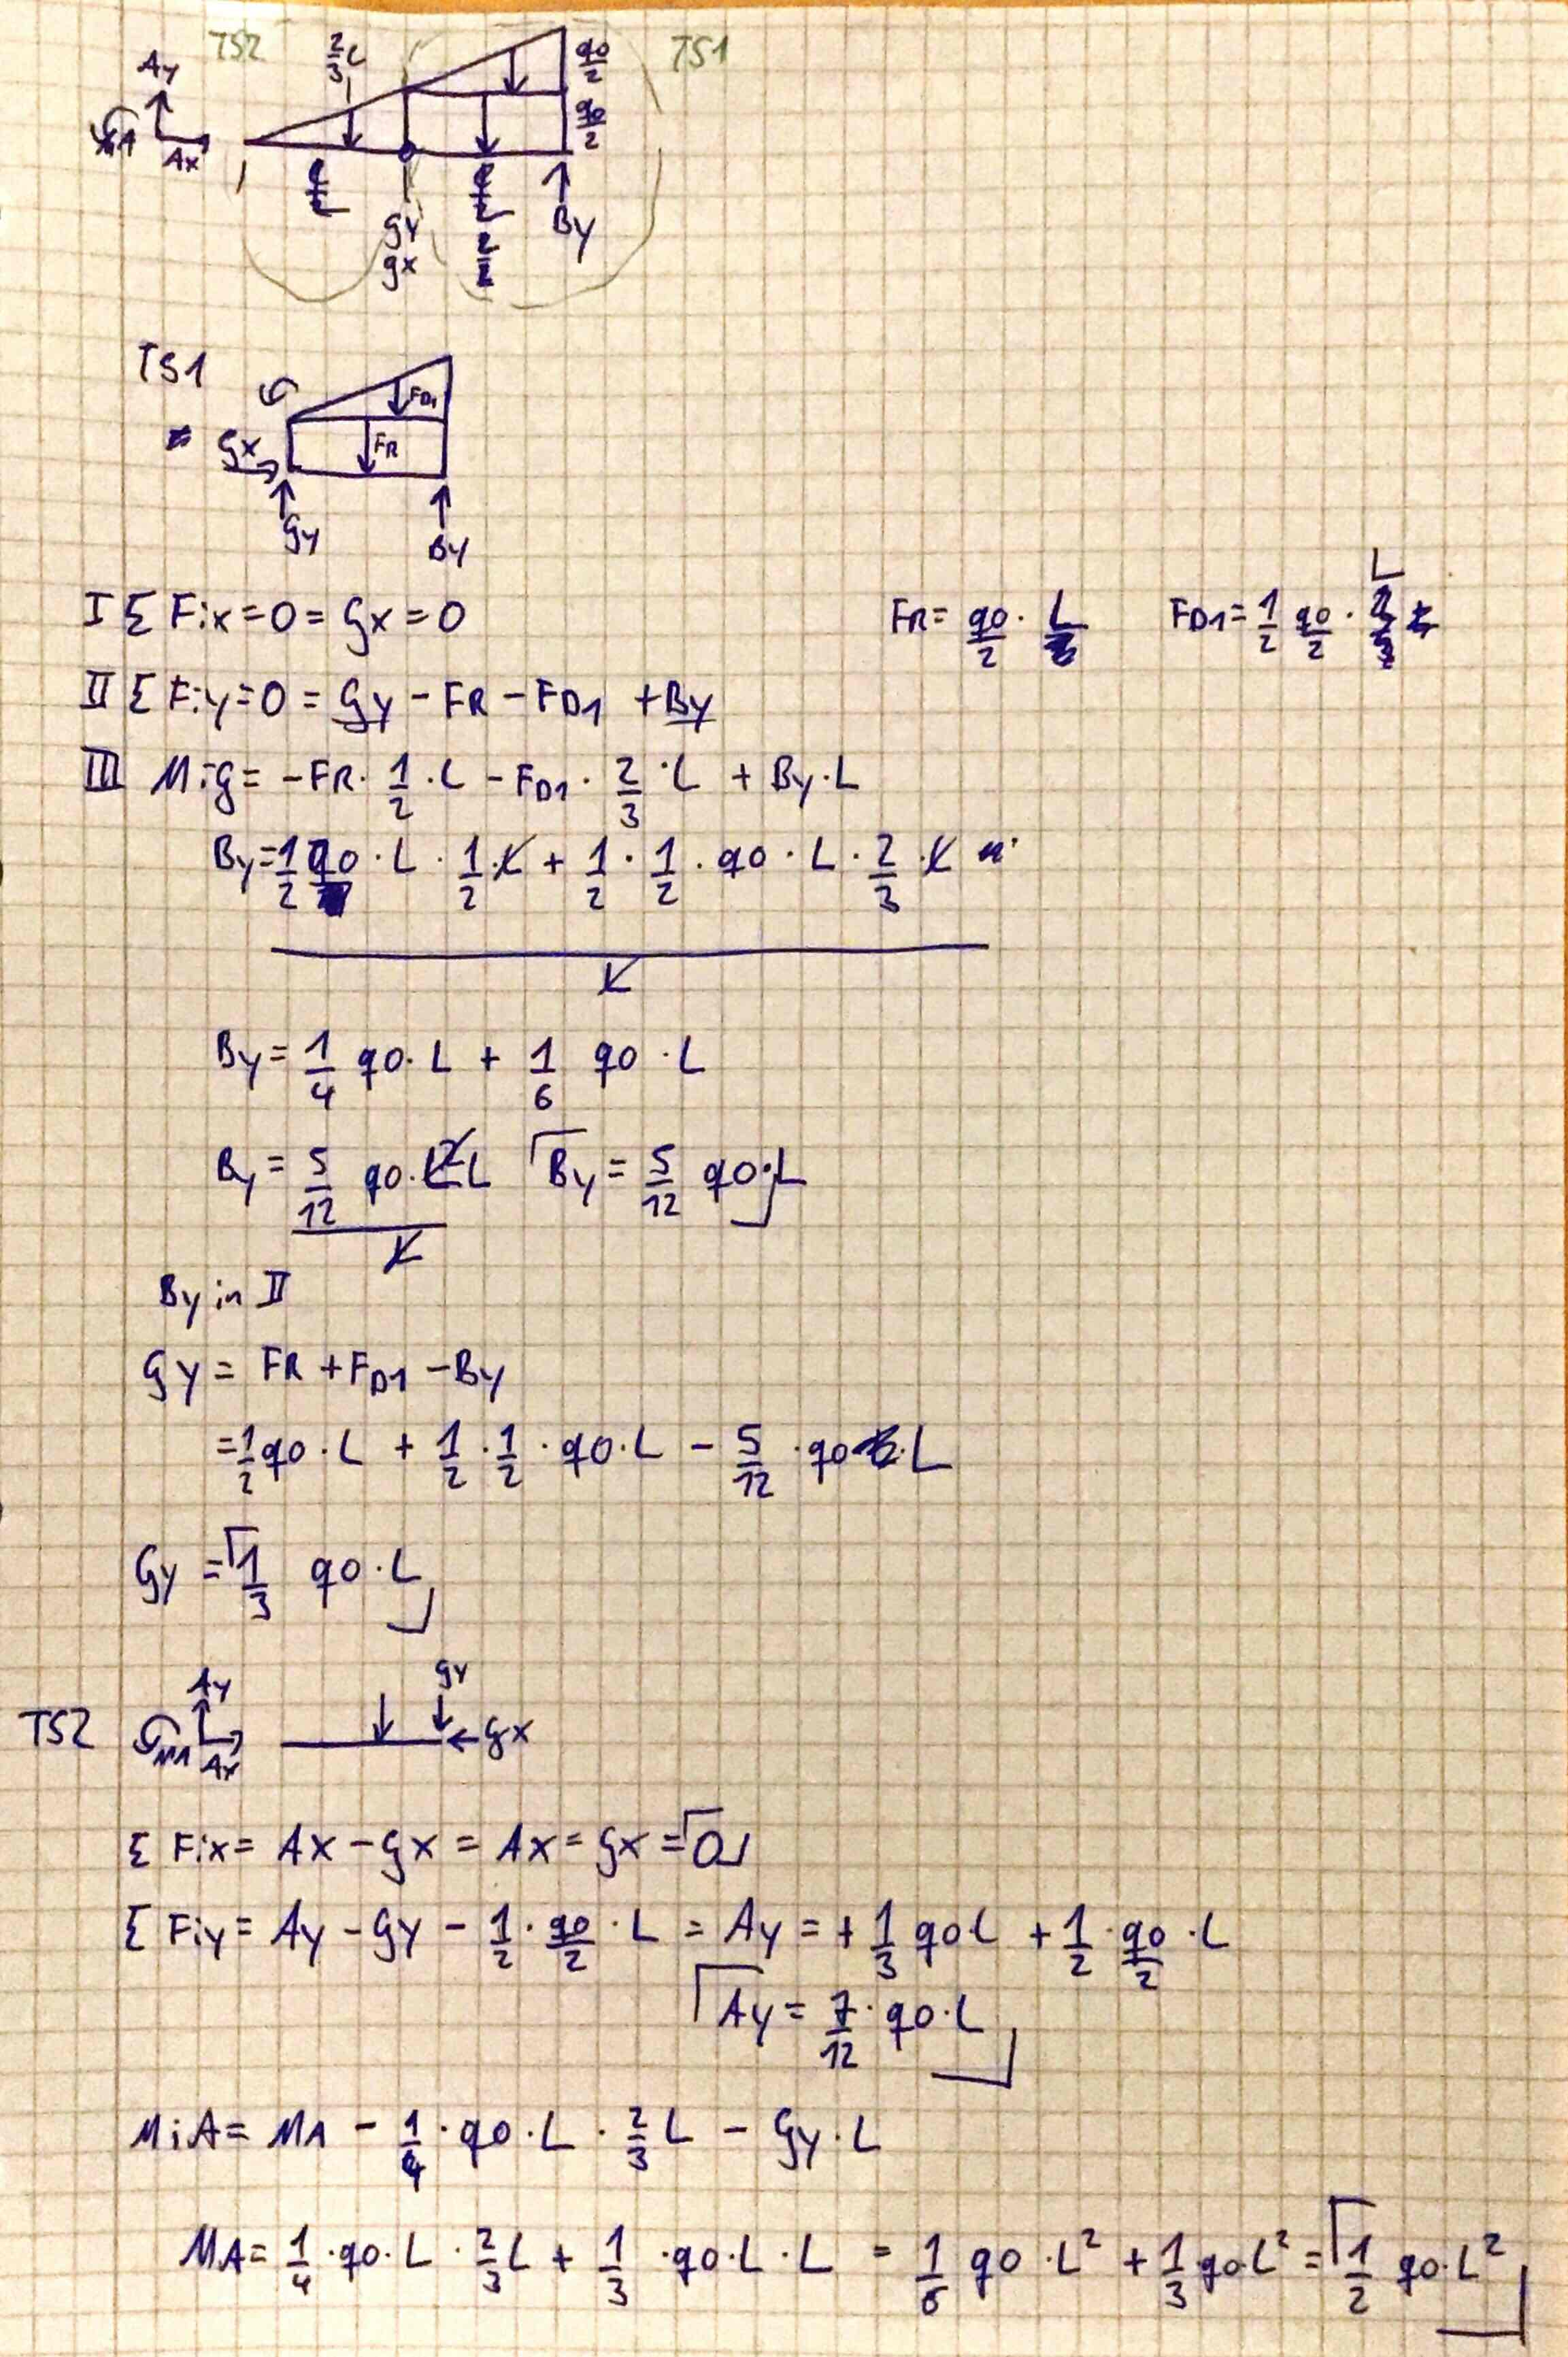 TS2 2/3 L q0/2 TS1
Ay
q0/2
MA Ax
Gy By
gx
TS1
FD1
Gx FR
Gy By
I Σ Fix=0= Gx=0 FR= q0/2 · L FD1= 1/2 q0/2 · L
II Σ Fiy=0 = Gy - FR - FD1 + By
III MiG= -FR · 1/2 · L - FD1 · 2/3 · L + By · L
By= 1/2 q0 · L · 1/2 · L + 1/2 · 1/2 · q0 · L · 2/3 · L
L
By= 1/4 q0 · L + 1/6 q0 · L
By= 5/12 q0 · L By= 5/12 q0 · L
By in II
Gy = FR + FD1 - By
= 1/2 q0 · L + 1/2 · 1/2 · q0 · L - 5/12 · q0 · L
Gy = 1/3 q0 · L
Ay gy
TS2 MA Ax gx
Σ Fix= Ax - Gx = Ax = Gx = 0
Σ Fiy= Ay - Gy - 1/2 · q0/2 · L = Ay = + 1/3 q0 L + 1/2 · q0/2 · L
Ay = 7/12 · q0 · L
MiA= MA - 1/4 · q0 · L · 2/3 L - Gy · L
MA= 1/4 · q0 · L · 2/3 L + 1/3 · q0 · L · L = 1/6 q0 · L² + 1/3 q0 L² = 1/2 q0 · L²